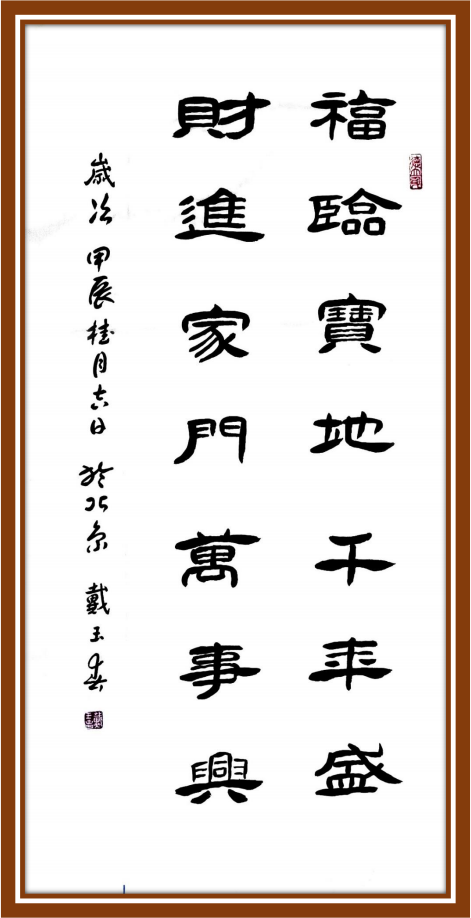 福臨寶地千年盛
財進家門萬事興
歲次 甲辰桂月吉日 於北京 戴玉